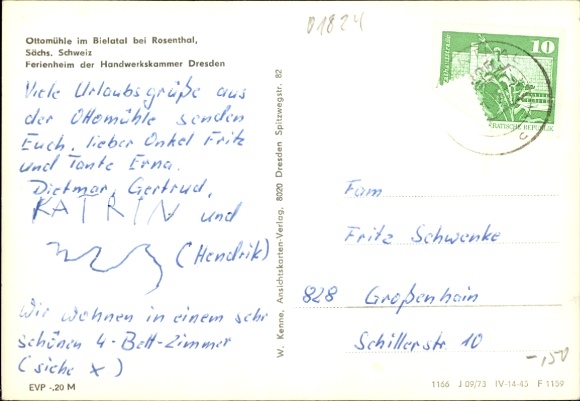 01824
Ottomühle im Bielatal bei Rosenthal,
Sächs. Schweiz
Ferienheim der Handwerkskammer Dresden
Viele Urlaubsgrüße aus
der Ottomühle senden
Euch, lieber Onkel Fritz
und Tante Erna.
Dietmar, Gertrud,
KATRIN und
(Hendrik)
Wir wohnen in einem sehr
schönen 4-Bett-Zimmer
(siehe x)
EVP -,20 M
W. Kenne, Ansichtskarten-Verlag, 8020 Dresden Spitzwegstr. 82
10
RATISCHE REPUBLIK
Fam
Fritz Schwenke
828 Großenhain
Schillerstr 10
-,50
1166 J 09/73 IV-14-45 F 1159